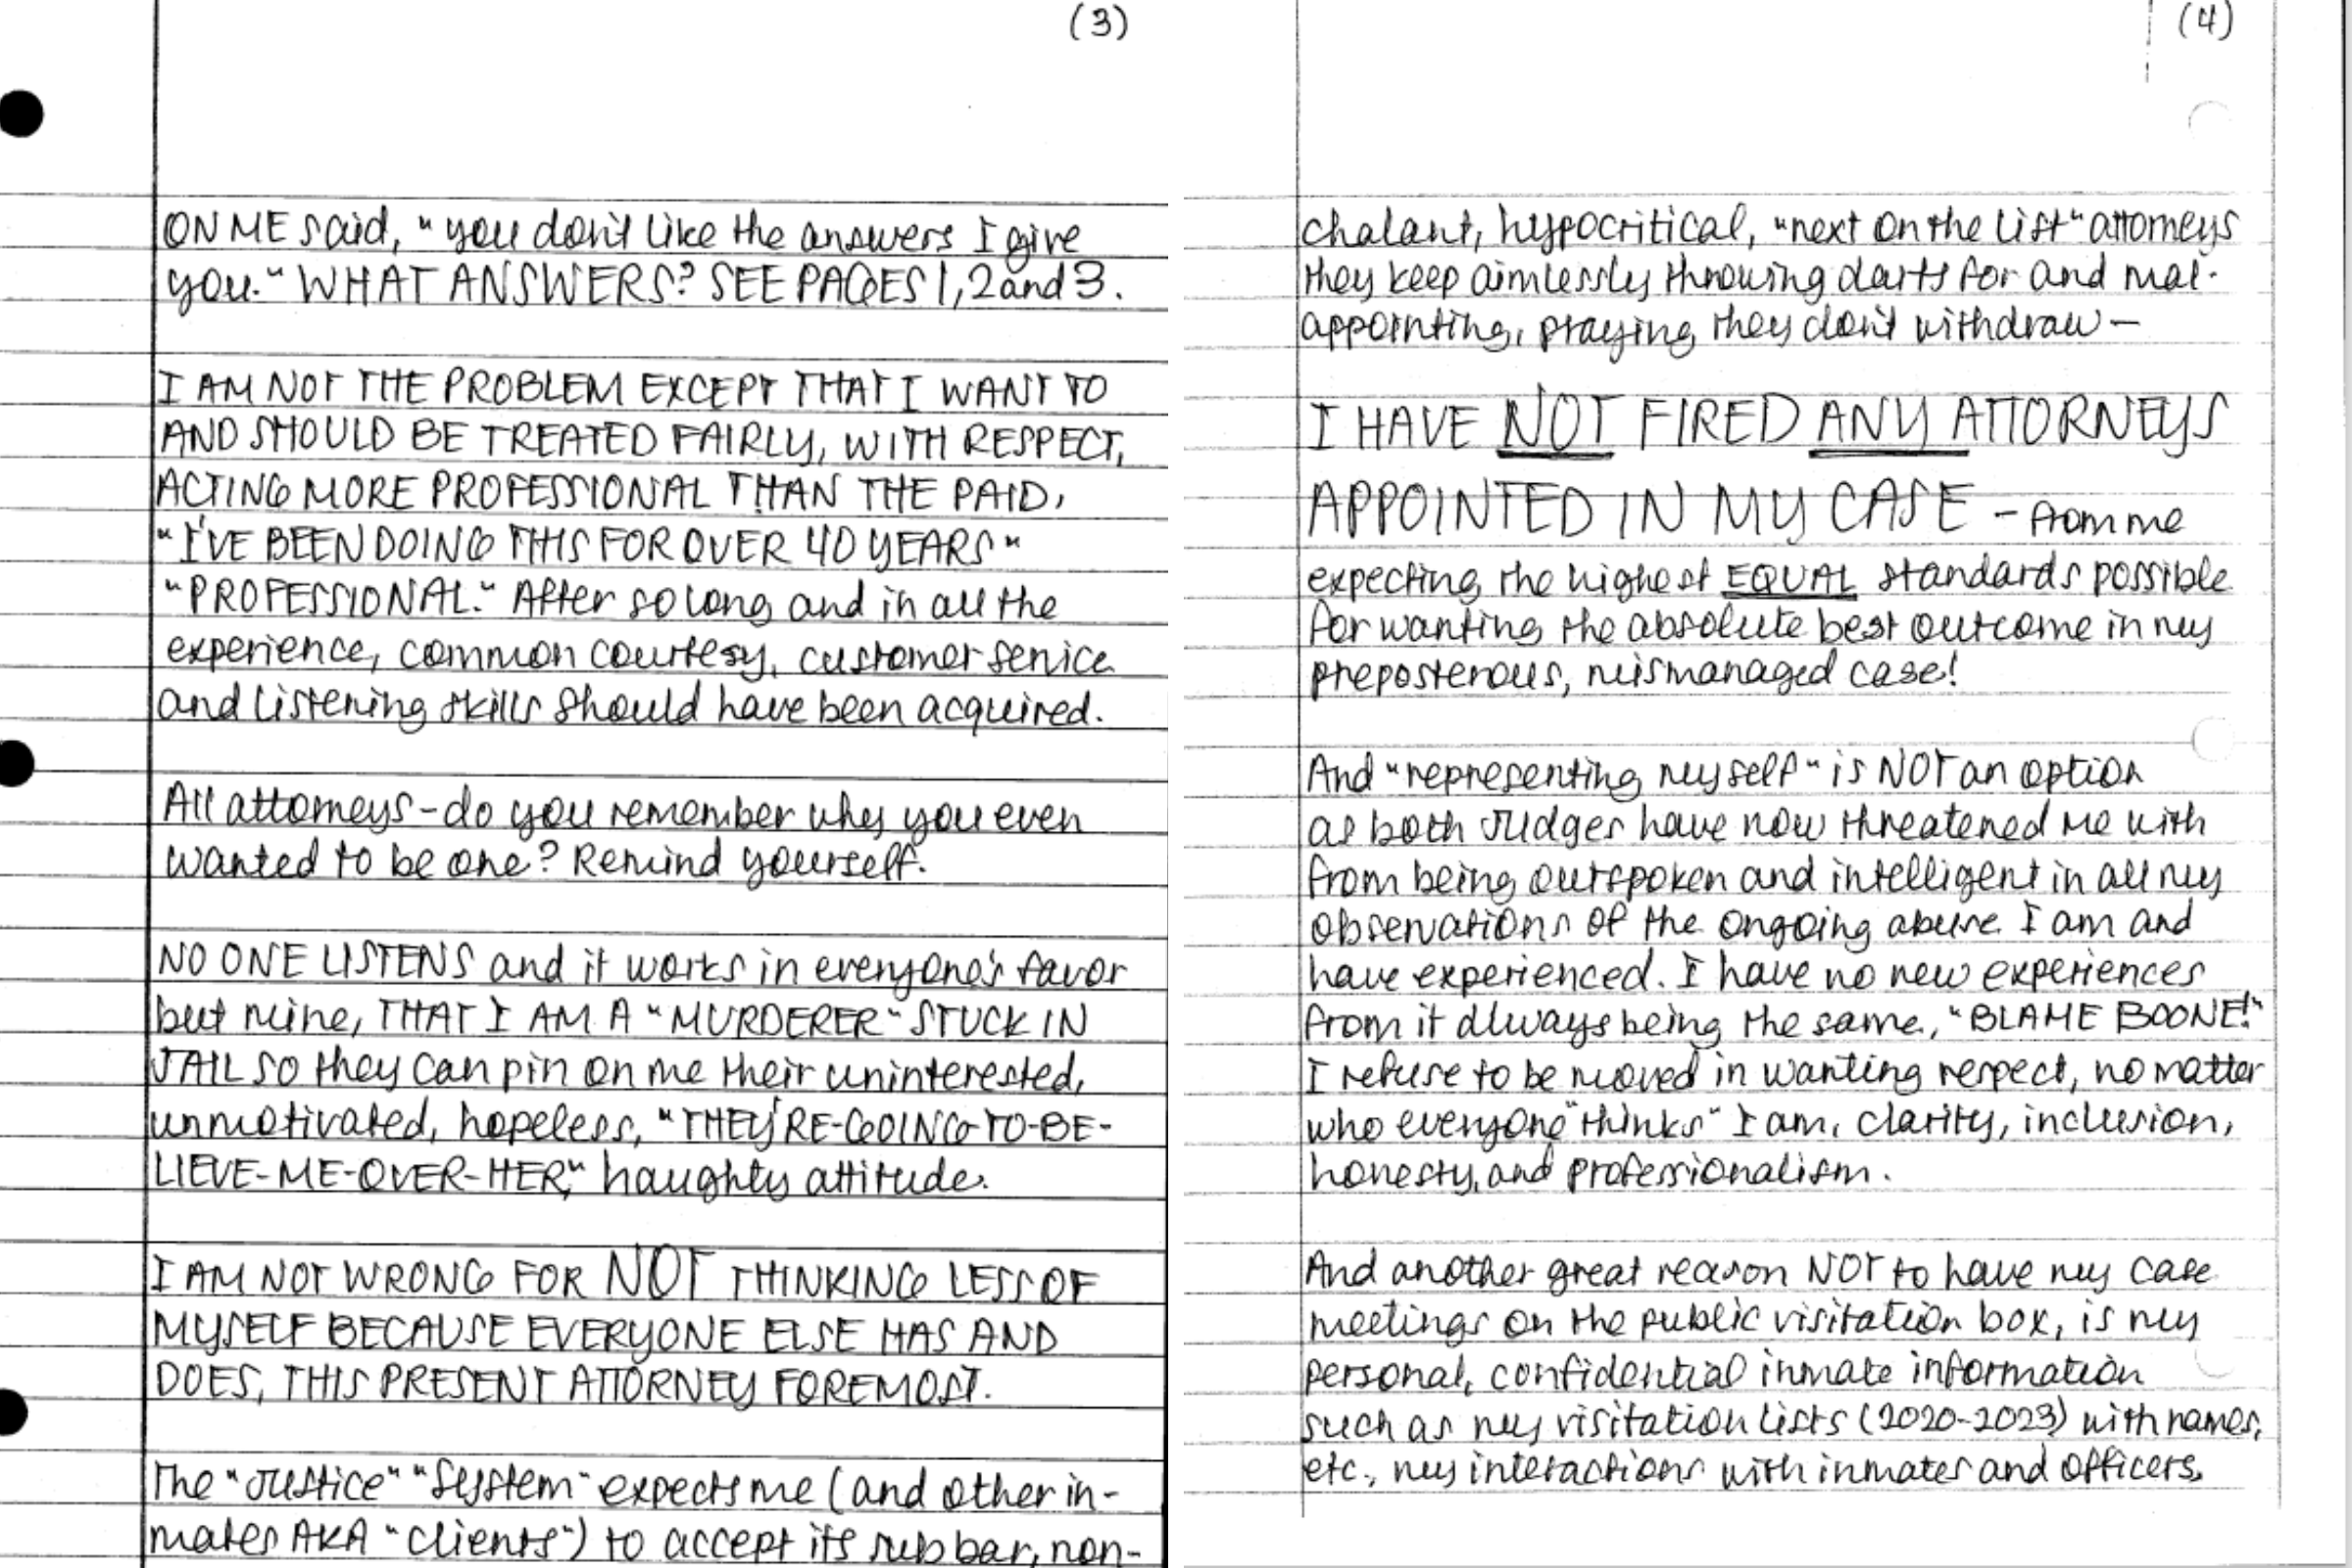 (3)
ON ME said, "you don't like the answers I give
you." WHAT ANSWERS? SEE PAGES 1, 2 and 3.
I AM NOT THE PROBLEM EXCEPT THAT I WANT TO
AND SHOULD BE TREATED FAIRLY, WITH RESPECT,
ACTING MORE PROFESSIONAL THAN THE PAID,
"I'VE BEEN DOING THIS FOR OVER 40 YEARS"
"PROFESSIONAL." After so long and in all the
experience, common courtesy, customer service
and listening skills should have been acquired.
All attorneys - do you remember why you even
wanted to be one? Remind yourself.
NO ONE LISTENS and it works in everyone's favor
but mine, THAT I AM A "MURDERER" STUCK IN
JAIL so they can pin on me their uninterested,
unmotivated, hopeless, "THEY'RE-GOING-TO-BE-
LIEVE-ME-OVER-HER," haughty attitude.
I AM NOT WRONG FOR NOT THINKING LESS OF
MYSELF BECAUSE EVERYONE ELSE HAS AND
DOES, THIS PRESENT ATTORNEY FOREMOST.
The "Justice" "System" expects me (and other in-
mates AKA "clients") to accept its sub bar, non-
(4)
chalant, hypocritical, "next on the list" attorneys
they keep aimlessly throwing darts for and mal-
appointing, praying they don't withdraw —
I HAVE NOT FIRED ANY ATTORNEYS
APPOINTED IN MY CASE - from me
expecting the highest EQUAL standards possible
for wanting the absolute best outcome in my
preposterous, mismanaged case!
And "representing myself" is NOT an option
as both Judges have now threatened me with
from being outspoken and intelligent in all my
observations of the ongoing abuse I am and
have experienced. I have no new experiences
from it always being the same, "BLAME BOONE!"
I refuse to be moved in wanting respect, no matter
who everyone "thinks" I am, clarity, inclusion,
honesty, and professionalism.
And another great reason NOT to have my case
meetings on the public visitation box, is my
personal, confidential inmate information
such as my visitation lists (2020-2023) with names,
etc., my interactions with inmates and officers,